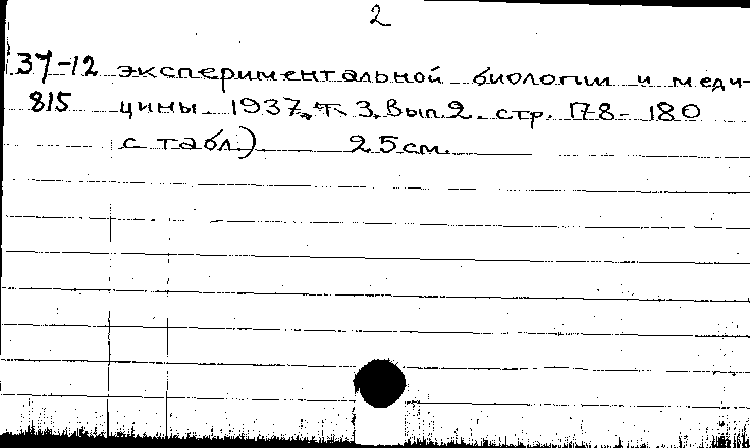 2
37-12 экспериментальной биологии и меди-
815 цины. 1937. т. 3. Вып. 2. стр. 178-180
с табл.) 25 см.